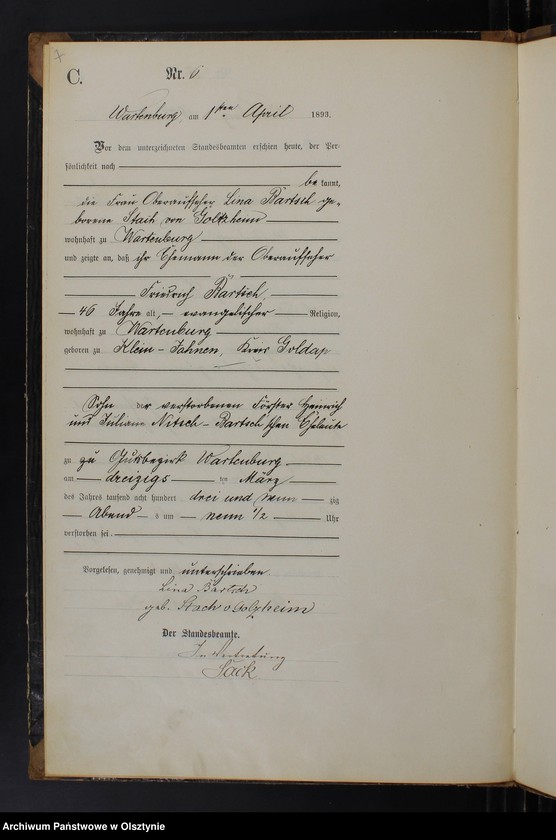 C.
Nr. 6
Wartenburg am 1sten April 1893.
Vor dem unterzeichneten Standesbeamten erschien heute, der Per-
sönlichkeit nach
be kannt,
die Frau Oberaufseher Lina Bartsch ge-
borene Stach von Goltzheim
wohnhaft zu Wartenburg
und zeigte an, daß ihr Ehemann der Oberaufseher
Friedrich Bartsch,
46 Jahre alt, evangelischer Religion,
wohnhaft zu Wartenburg
geboren zu Klein-Jahnen, Kreis Goldap
Sohn der verstorbenen Förster Heinrich
und Juliane Nitsch-Bartsch'schen Eheleute
zu zu Gutsbezirk Wartenburg
am dreizigs ten März
des Jahres tausend acht hundert drei und neun zig
Abend s um neun 1/2 Uhr
verstorben sei.
Vorgelesen, genehmigt und unterschrieben
Lina Bartsch
geb. Stach v Golzheim
Der Standesbeamte.
In Vertretung
Sack
Archiwum Państwowe w Olsztynie